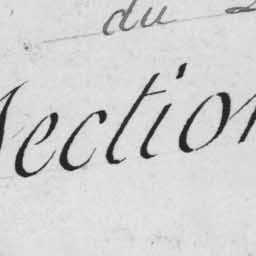 du
Section